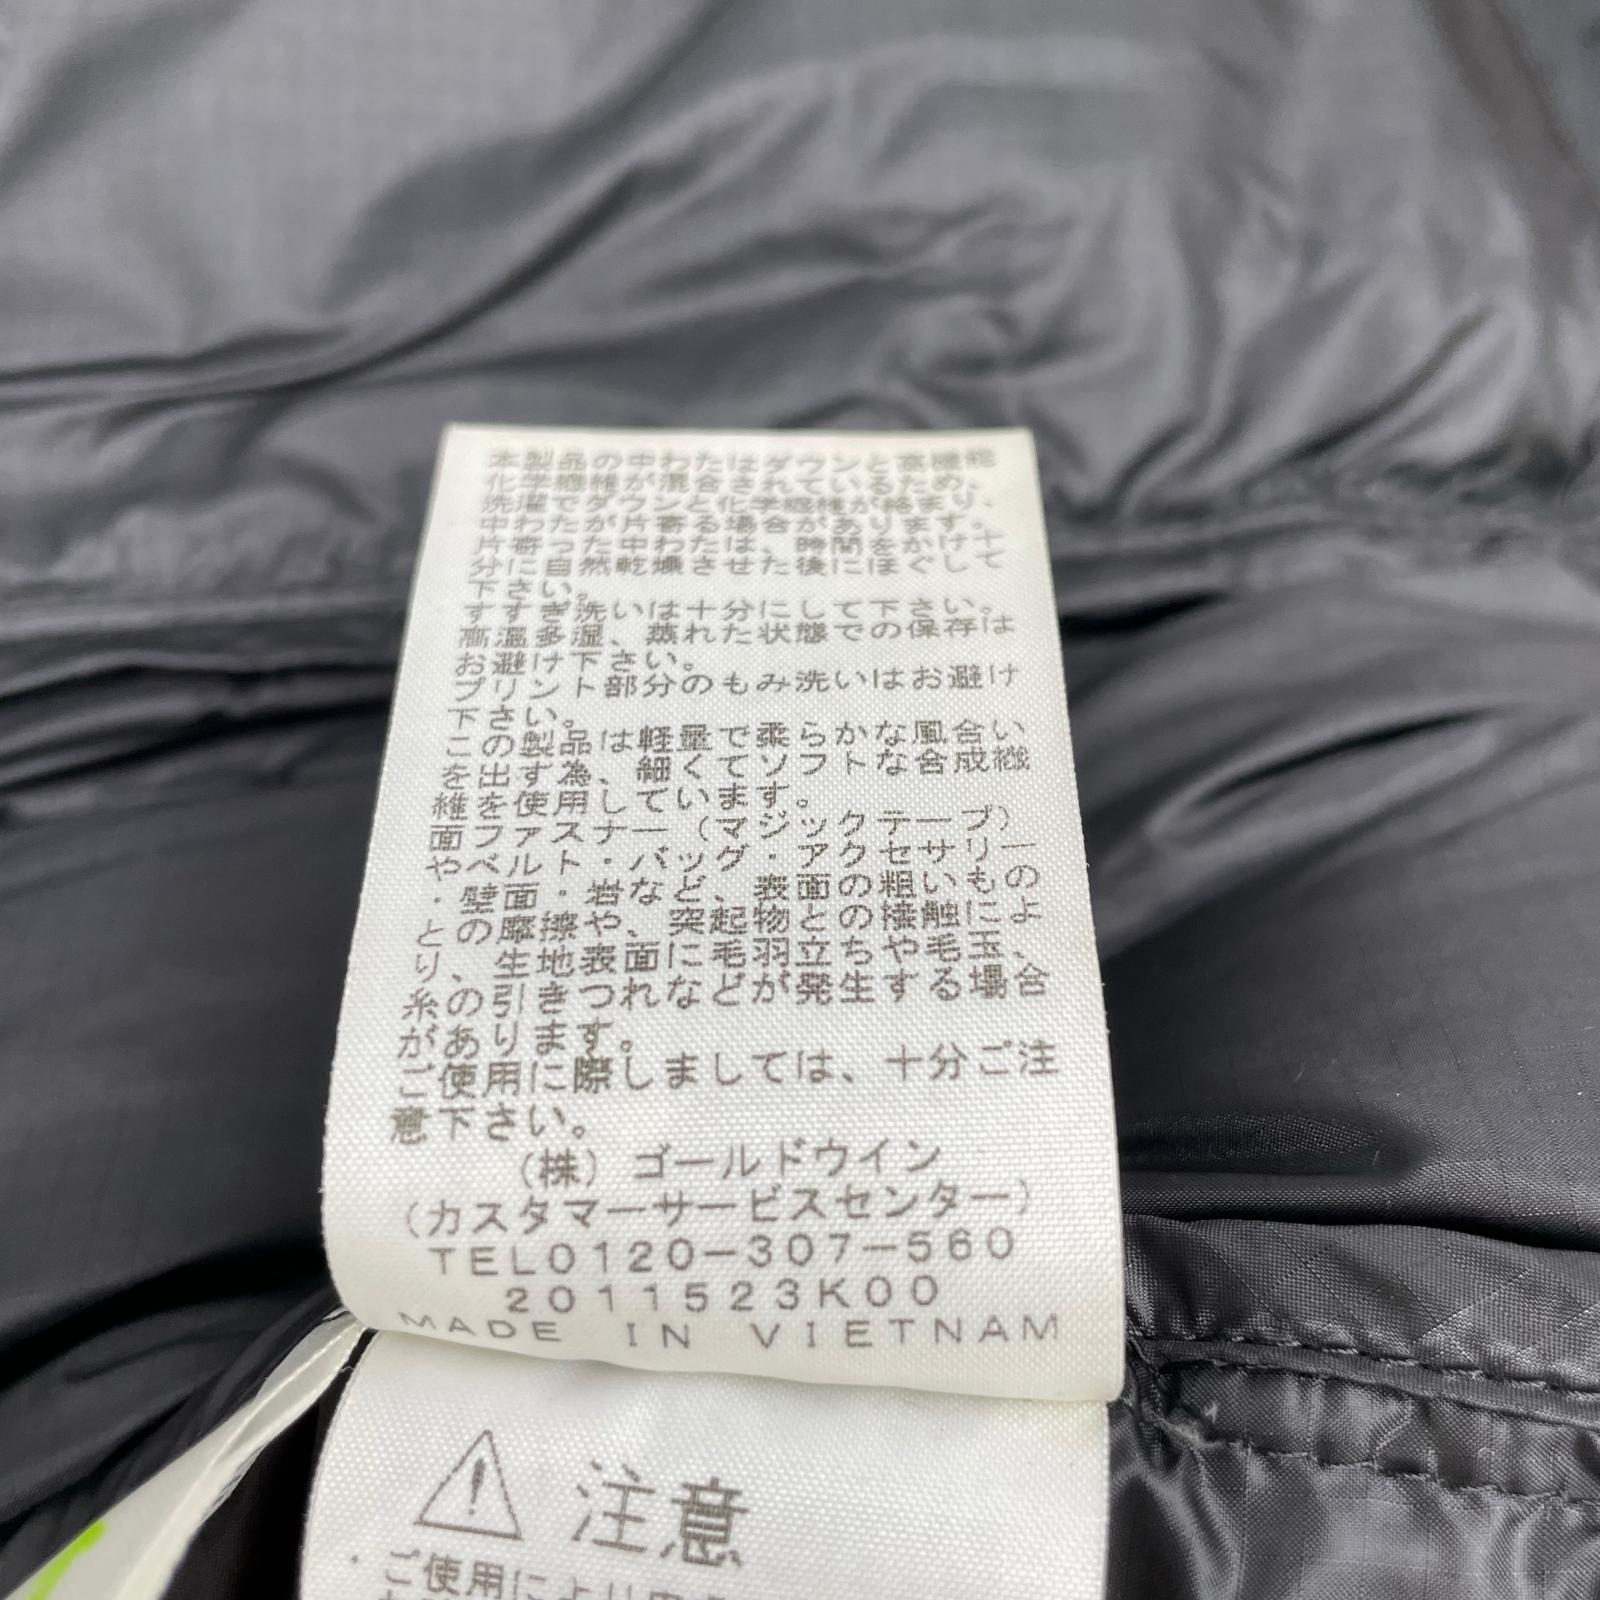 本製品の中わたはダウンと高機能
化学繊維が混合されているため、
洗濯でダウンと化学繊維が絡まり、
中わたが片寄る場合があります。
片寄った中わたは、時間をかけ十
分に自然乾燥させた後にほぐして
下さい。
すすぎ洗いは十分にして下さい。
高温多湿、蒸れた状態での保存は
お避け下さい。
プリント部分のもみ洗いはお避け
下さい。
この製品は軽量で柔らかな風合い
を出す為、細くてソフトな合成繊
維を使用しています。
面ファスナー(マジックテープ)
やベルト・バッグ・アクセサリー
・壁面・岩など、表面の粗いもの
との摩擦や、突起物との接触によ
り、生地表面に毛羽立ちや毛玉、
糸の引きつれなどが発生する場合
があります。
ご使用に際しましては、十分ご注
意下さい。
(株)ゴールドウイン
(カスタマーサービスセンター)
TEL0120-307-560
2011523K00
MADE IN VIETNAM
注意
・ご使用により